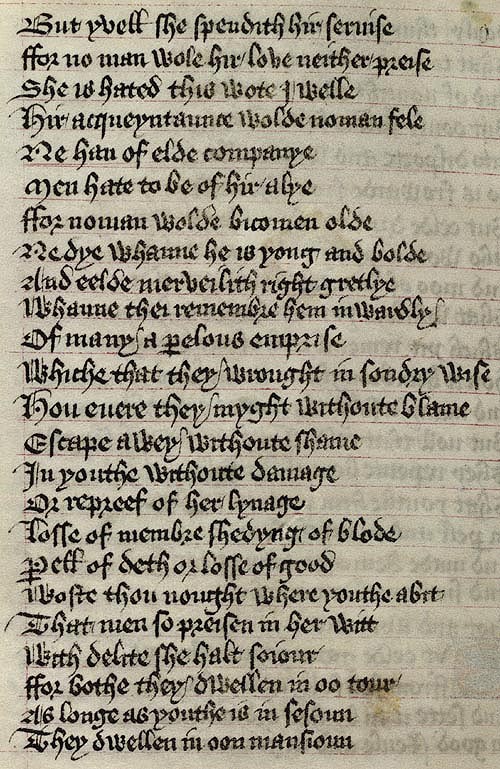 But yvell she spendith hir servise
ffor no man wole hir love neither preise
She is hated this wote I welle
Hir acqueyntaunce wolde noman fele
Ne han of elde companye
Men hate to be of hir alye
ffor noman wolde bicomen olde
Ne dye whanne he is yong and bolde
And eelde merveilith right gretlye
Whanne thei remembre hem inwardly
Of many a perelous emprise
Whiche that they wrought in sondry wise
Hou euere they myght withoute blame
Escape awey withoute shame
In youthe withoute damage
Or repreef of her lynage
Losse of membre shedyng of blode
Perell of deth or losse of good
Woste thou nought where youthe abit
That men so preisen in her witt
With delite she halt soiour
ffor bothe they dwellen in oo tour
As longe as youthe is in sesoun
They dwellen in oon mansioun